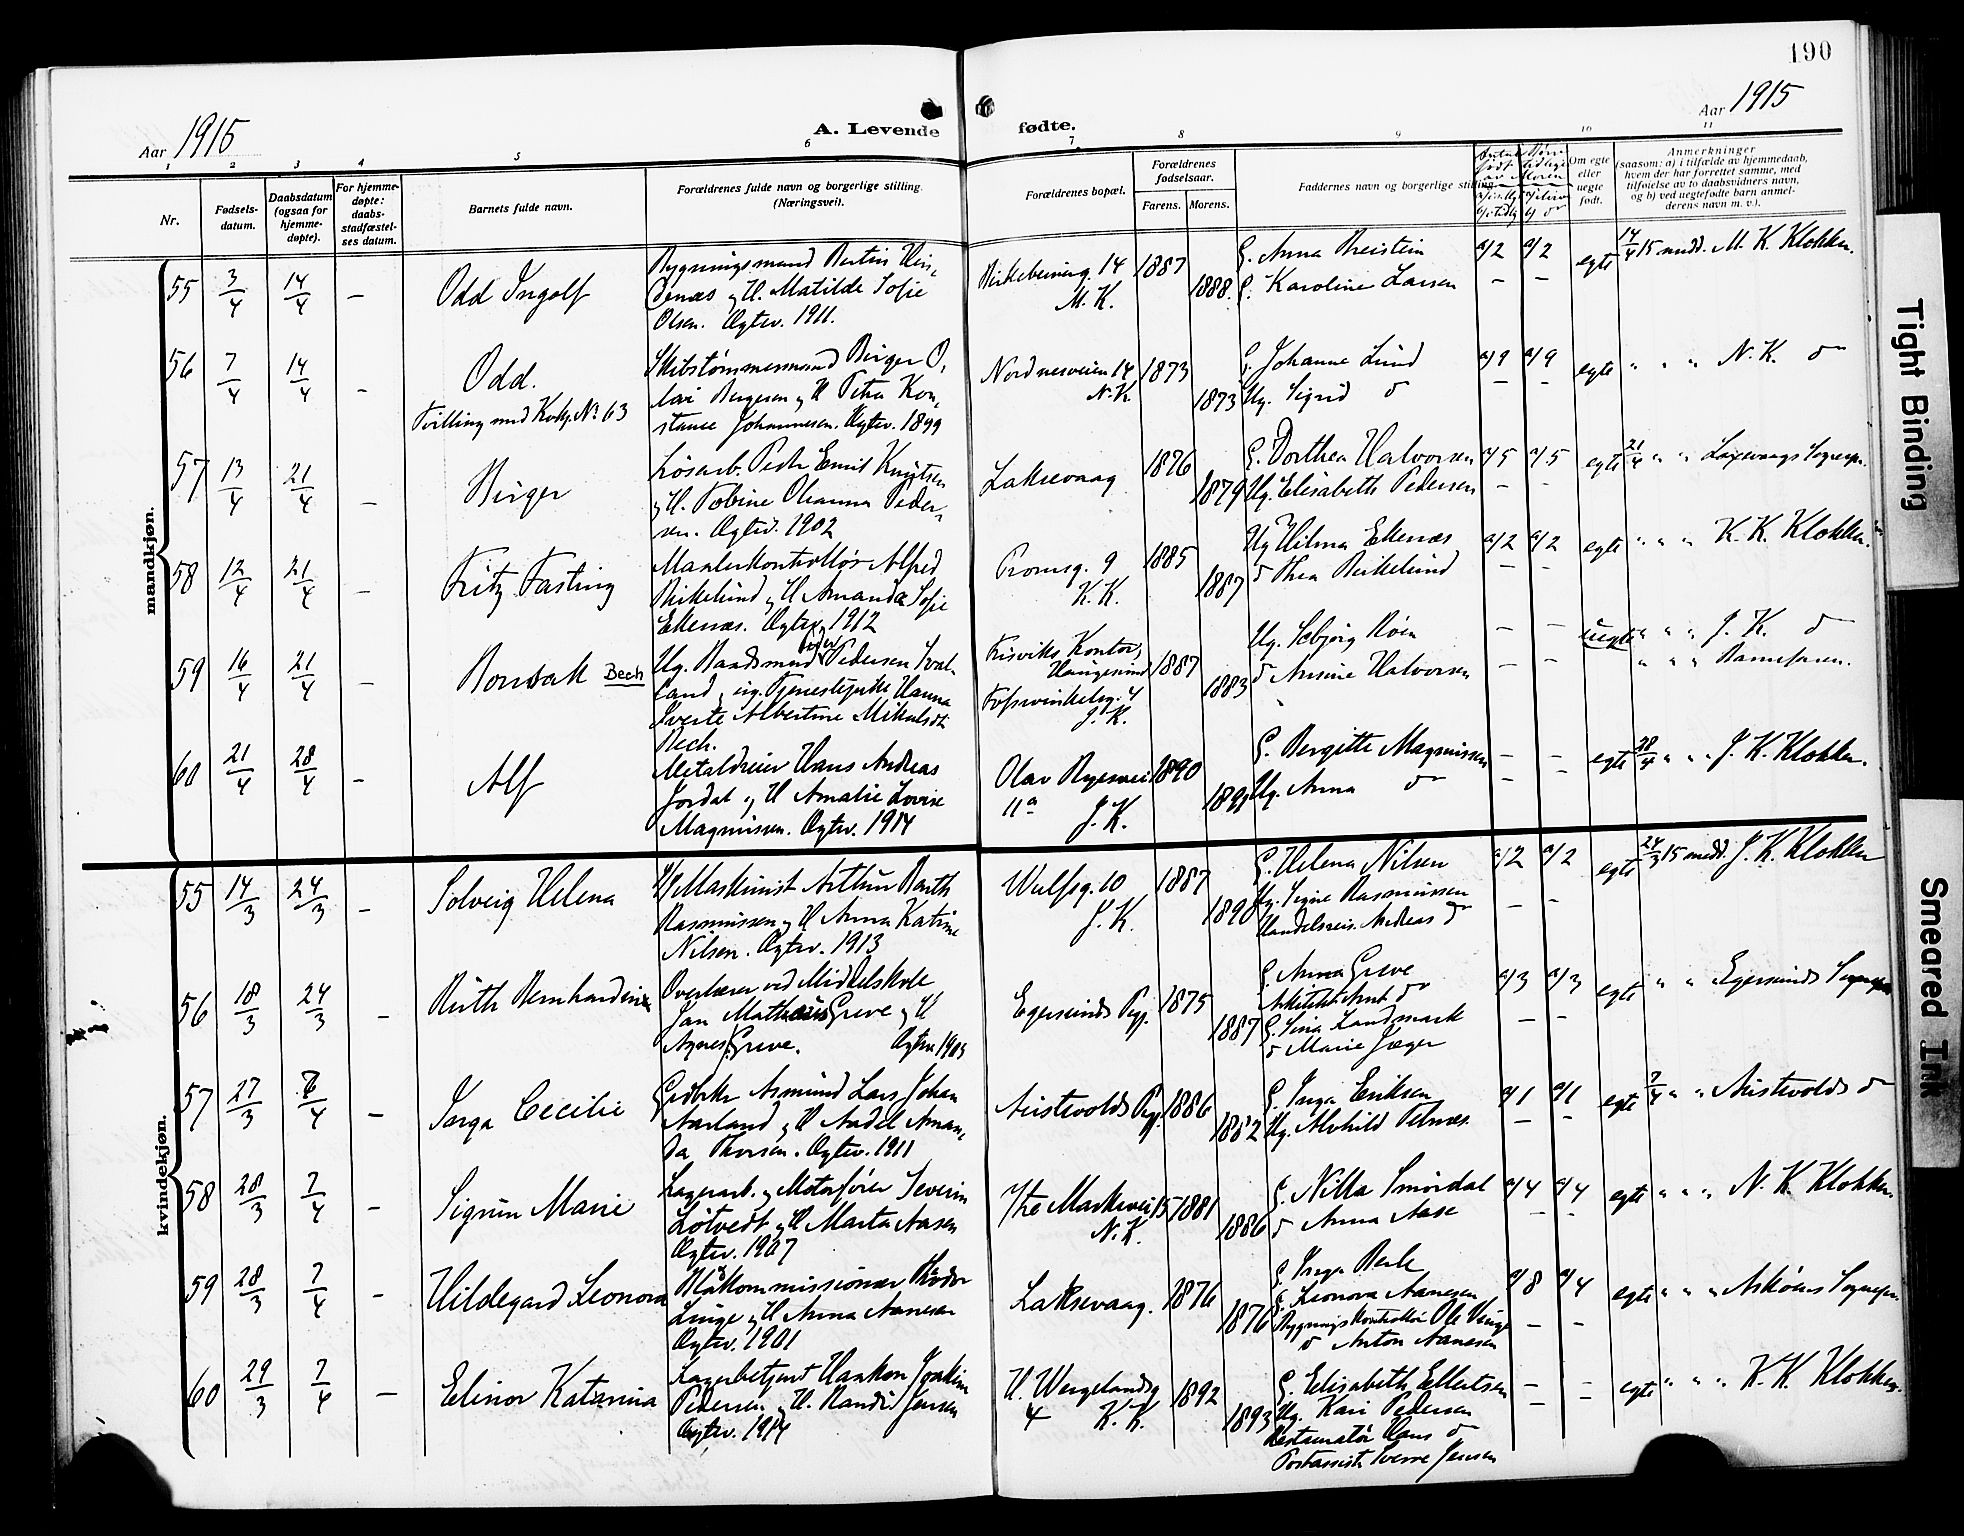 190
Aar 1915
A. Levende
fødte.
Aar 1915
1 2 3 4 5 6 7 8 9 10 11
Nr.
Fødsels-
datum.
Daabsdatum
(ogsaa for
hjemme-
døpte).
For hjemme-
døpte:
daabs-
stadfæstel-
ses datum.
Barnets fulde navn.
Forældrenes fulde navn og borgerlige stilling.
(Næringsvei).
Forældrenes bopæl.
Forældrenes
fødselsaar.
Farens. Morens.
Faddernes navn og borgerlige stilling.
Om egte
eller
uegte
født.
Anmerkninger
(saasom: a) i tilfælde av hjemmedaab,
hvem der har forrettet samme, med
tilføielse av to daabsvidners navn,
og b) ved uegtefødte barn anmel-
derens navn m. v.).
mandkjøn.
55 3/4 14/4 – Odd Ingolf
Bygningsmand Bertin Hin-
denæs og H. Matilde Sofie
Olsen. Egtev. 1911.
Birkebeinerg. 14
M. K.
1887
1888.
G. Anna Breistein
G. Karoline Larsen
a/2 a/2
egte
14/4 15 medd. M. K. Klokker.
56 7/4 14/4 – Odd.
Tvilling med Kvkj. No 63
Skibstømmermand Birger O-
lai Bergesen og H Petra Kon-
stance Johannesen. Egtev. 1899
Nordnesveien 14
N. K.
1873
1873
G. Johanne Lund
Ug. Sigrid do
a/9 a/9
egte
" " " N. K. do
57 13/4 21/4 – Birger
Løsarb. Peder Emil Knutsen
og H. Tobine Oleanna Peder-
sen. Egtev. 1902
Laksevaag
1876
1879
G. Dorthea Halvorsen
Ug. Elisabeth Pedersen
a/5 a/5
egte
21/4 " " Laxevaags Sognepr.
58 12/4 21/4 – Fritz Fasting
Maalerkontrollør Alfred
Birkelund og H Amanda Sofie
Ekenæs. Egtev. 1912
Tromsg. 9
K. K.
1885
1887
Ug Hilma Ekenæs
do Thea Birkelund
a/2 a/2
egte
" " " K. K. Klokker.
59 16/4 21/4 – Bonsak Bech
Ug. Baadsmand Peder Pedersen
land, ug. Tjenestepike Hanna
Sverte Albertine Mikalsdt.
Bech.
Risviks Kontor,
Haugesund
Fosswinkelsg. 4
J. K.
1887
1883
Ug. Roen
do Arnine Halvorsen
uegte
" " " J. K. do
" " " Barnefaren.
60 21/4 28/4 – Alf
Metaldreier Hans Andreas
Jordal og H Amalie Lovise
Magnussen. Egtev. 1914
Olav Ryesvei
11a J. K.
1890
1891
G. Bergitte Magnussen
Ug. Anna do
egte
28/4 " " J. K. Klokker.
kvindekjøn.
55 14/3 24/3 – Solveig Helena
Maskinist Arthur Barth
Rasmussen og H Anna Katrine
Nilsen. Egtev. 1913
Wulfsg. 10
J. K.
1887
1890
G. Helena Nilsen
Ug. Signe Rasmussen
Handelsreis. Andreas do
a/2 a/2
egte
24/3 15 medd. J. K. Klokker
56 18/3 24/3 – Ruth Bernhardine
Overlærer ved Middelskole
Jan Mathæus Greve og H
Agnes Greve. Egtev. 1905
Egersunds Pgj.
1875
1887
G. Anna Greve
Arkitekt Arnt do
G. Sina Landmark
do Marie Jæger
a/3 a/3
egte
" " Egersunds Sognepr.
57 27/3 7/4 – Inga Cecilie
Gaardbr. Asmund Lars Johan
Aarland og H Aadel Aman-
da Thorsen. Egtev. 1911
Austevolds Pgj.
1886
1882
G. Inga Eriksen
Ug. Alvhild Pelnæs
a/1 a/1
egte
7/4 " " Austevolds do
58 28/3 7/4 – Sigrun Marie
Lagerarb. og Motorfører Severin
Løtvedt og H Marta Aasen
Egtev. 1907
Ytre Markevei 15
N. K.
1881
1886
G. Nilla Smørdal
do Anna Aase
a/4 a/4
egte
" " " N. K Klokker.
59 28/3 7/4 – Hildegard Leonora
Linge og H Anna Aanesen
Egtev. 1901
Laksevaag.
1876
1876
G. Inga Berle
G. Leonora Aanesen
Bygningskontrollør Ole Vinge
do Anton Aanesen
a/8 a/4
egte
" " " Askøens Sognepr.
60 29/3 7/4 – Elinor Katarina
Lagerbetjent Haakon Joakim
Pedersen og H. Randi Jensen
Egtev. 1914
H. Wergelandsg
4 K. K.
1892
1893
G. Elisabeth Ellertsen
Ug. Kari Pedersen
Restauratør Hans do
Postassistent Sverre Jensen
egte
" " " K. K. Klokker.
Tight Binding
Smeared Ink